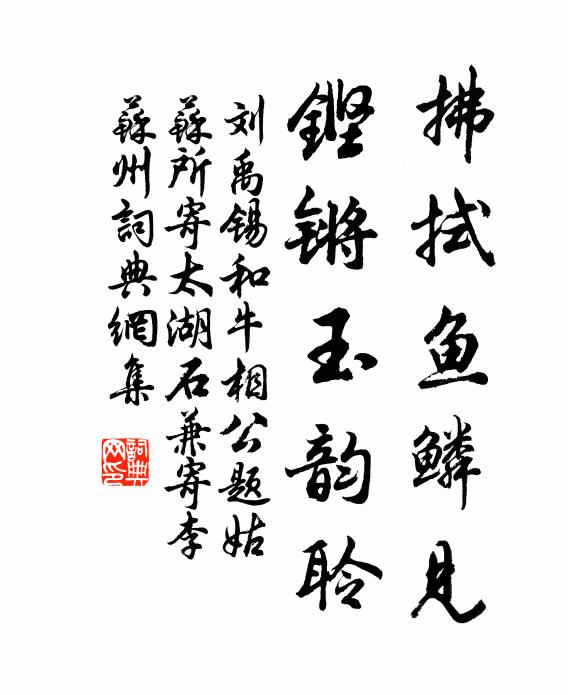 拂拭鱼鳞见
鏗锵玉韵聆
刘禹锡和牛相公题姑
蘇所寄太湖石兼寄李
蘇州詞典網集
詞典网印